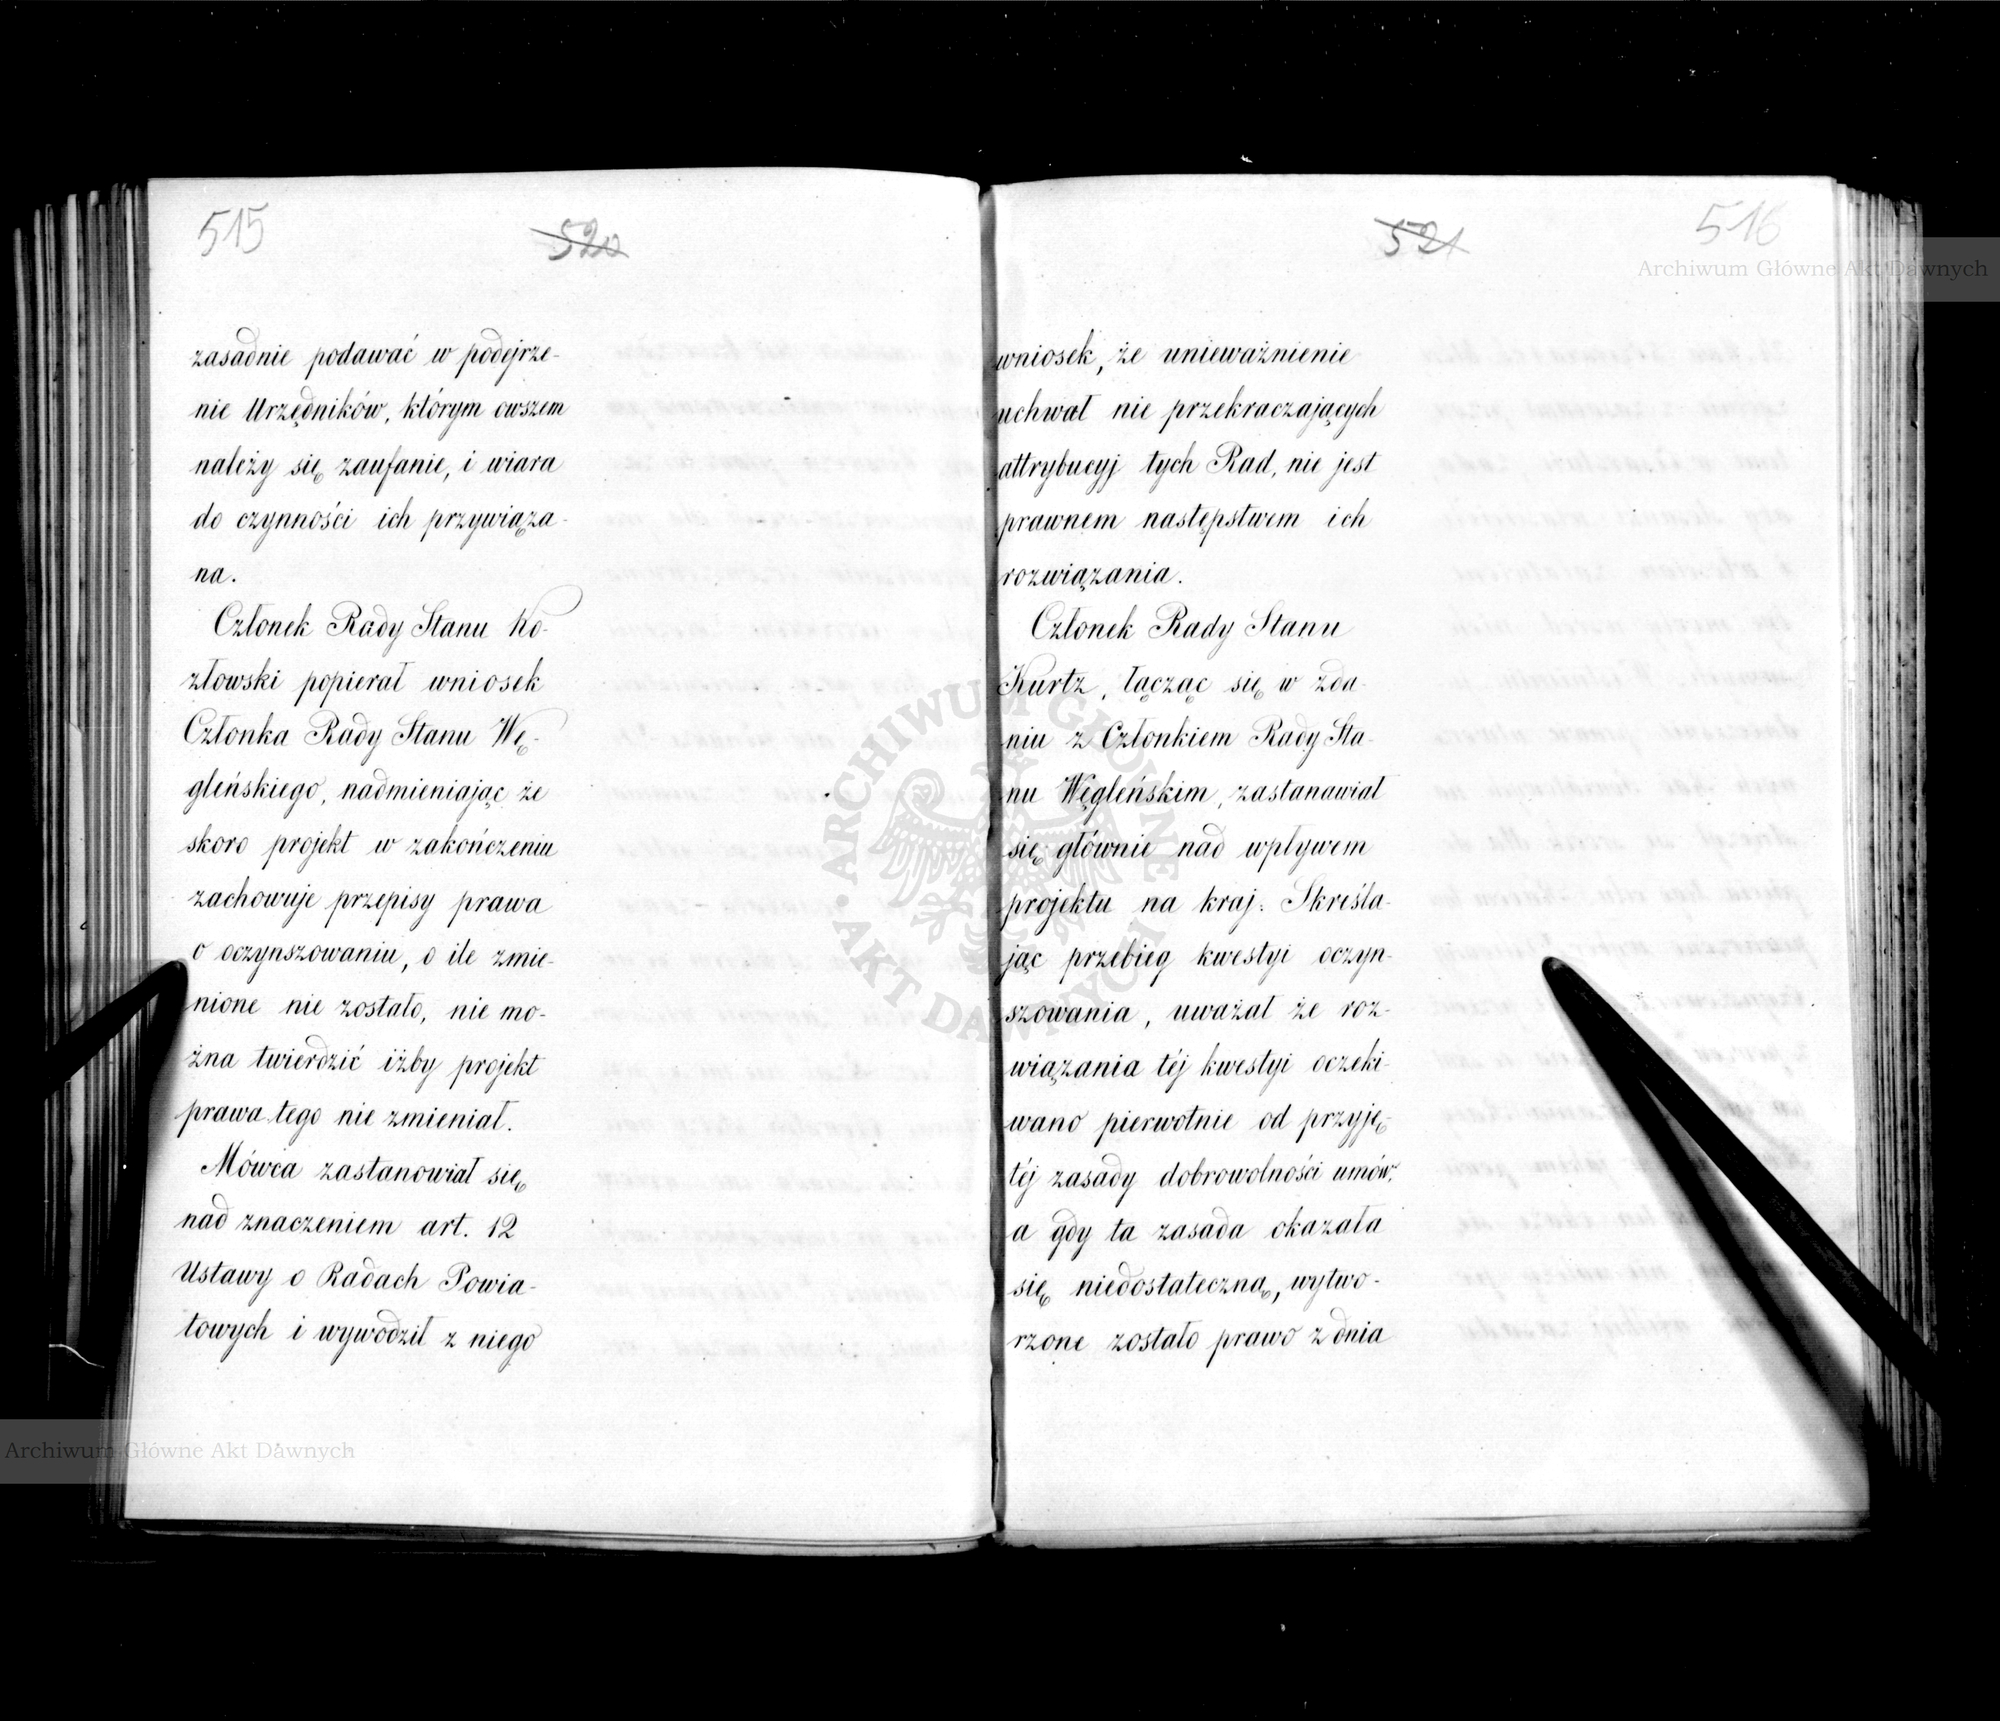 515
520
zasadnie podawać w podejrze-
nie Urzędników, którym owszem
należy się zaufanie, i wiara
do czynności ich przywiąza-
na.
Członek Rady Stanu Ko-
złowski popierał wniosek
Członka Rady Stanu Wę-
gleńskiego, nadmieniając że
skoro projekt w zakończeniu
zachowuje przepisy prawa
o oczynszowaniu, o ile zmie-
nione nie zostało, nie mo-
żna twierdzić iżby projekt
prawa tego nie zmieniał.
Mówca zastanowiał się
nad znaczeniem art. 12
Ustawy o Radach Powia-
towych i wywodził z niego
521
516
wniosek, że unieważnienie
uchwał nie przekraczających
attrybucyj tych Rad, nie jest
prawnem następstwem ich
rozwiązania.
Członek Rady Stanu
Kurtz, łącząc się w zda-
niu z Członkiem Rady Sta-
nu Węgleńskim, zastanawiał
się głównie nad wpływem
projektu na kraj. Skreśla-
jąc przebieg kwestyi oczyn-
szowania, uważał że roz-
wiązania téj kwestyi oczeki-
wano pierwotnie od przyję-
téj zasady dobrowolności umów,
a gdy ta zasada okazała
się niedostateczną, wytwo-
rzone zostało prawo z dnia
Archiwum Główne Akt Dawnych
ARCHIWUM GŁÓWNE AKT DAWNYCH
Archiwum Główne Akt Dawnych